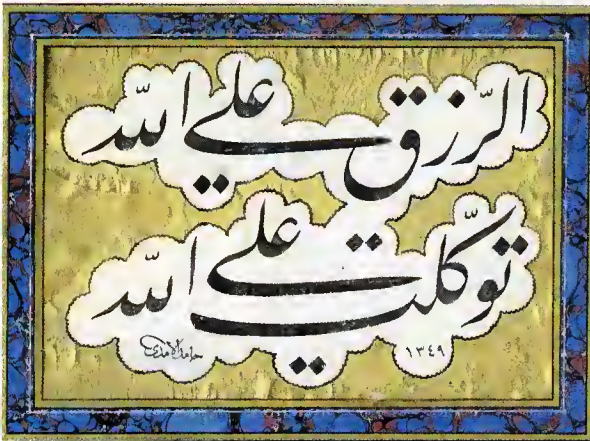 الرّزق علي الله
توكّلت علي الله
١٣٤٩
حامد الآمدي